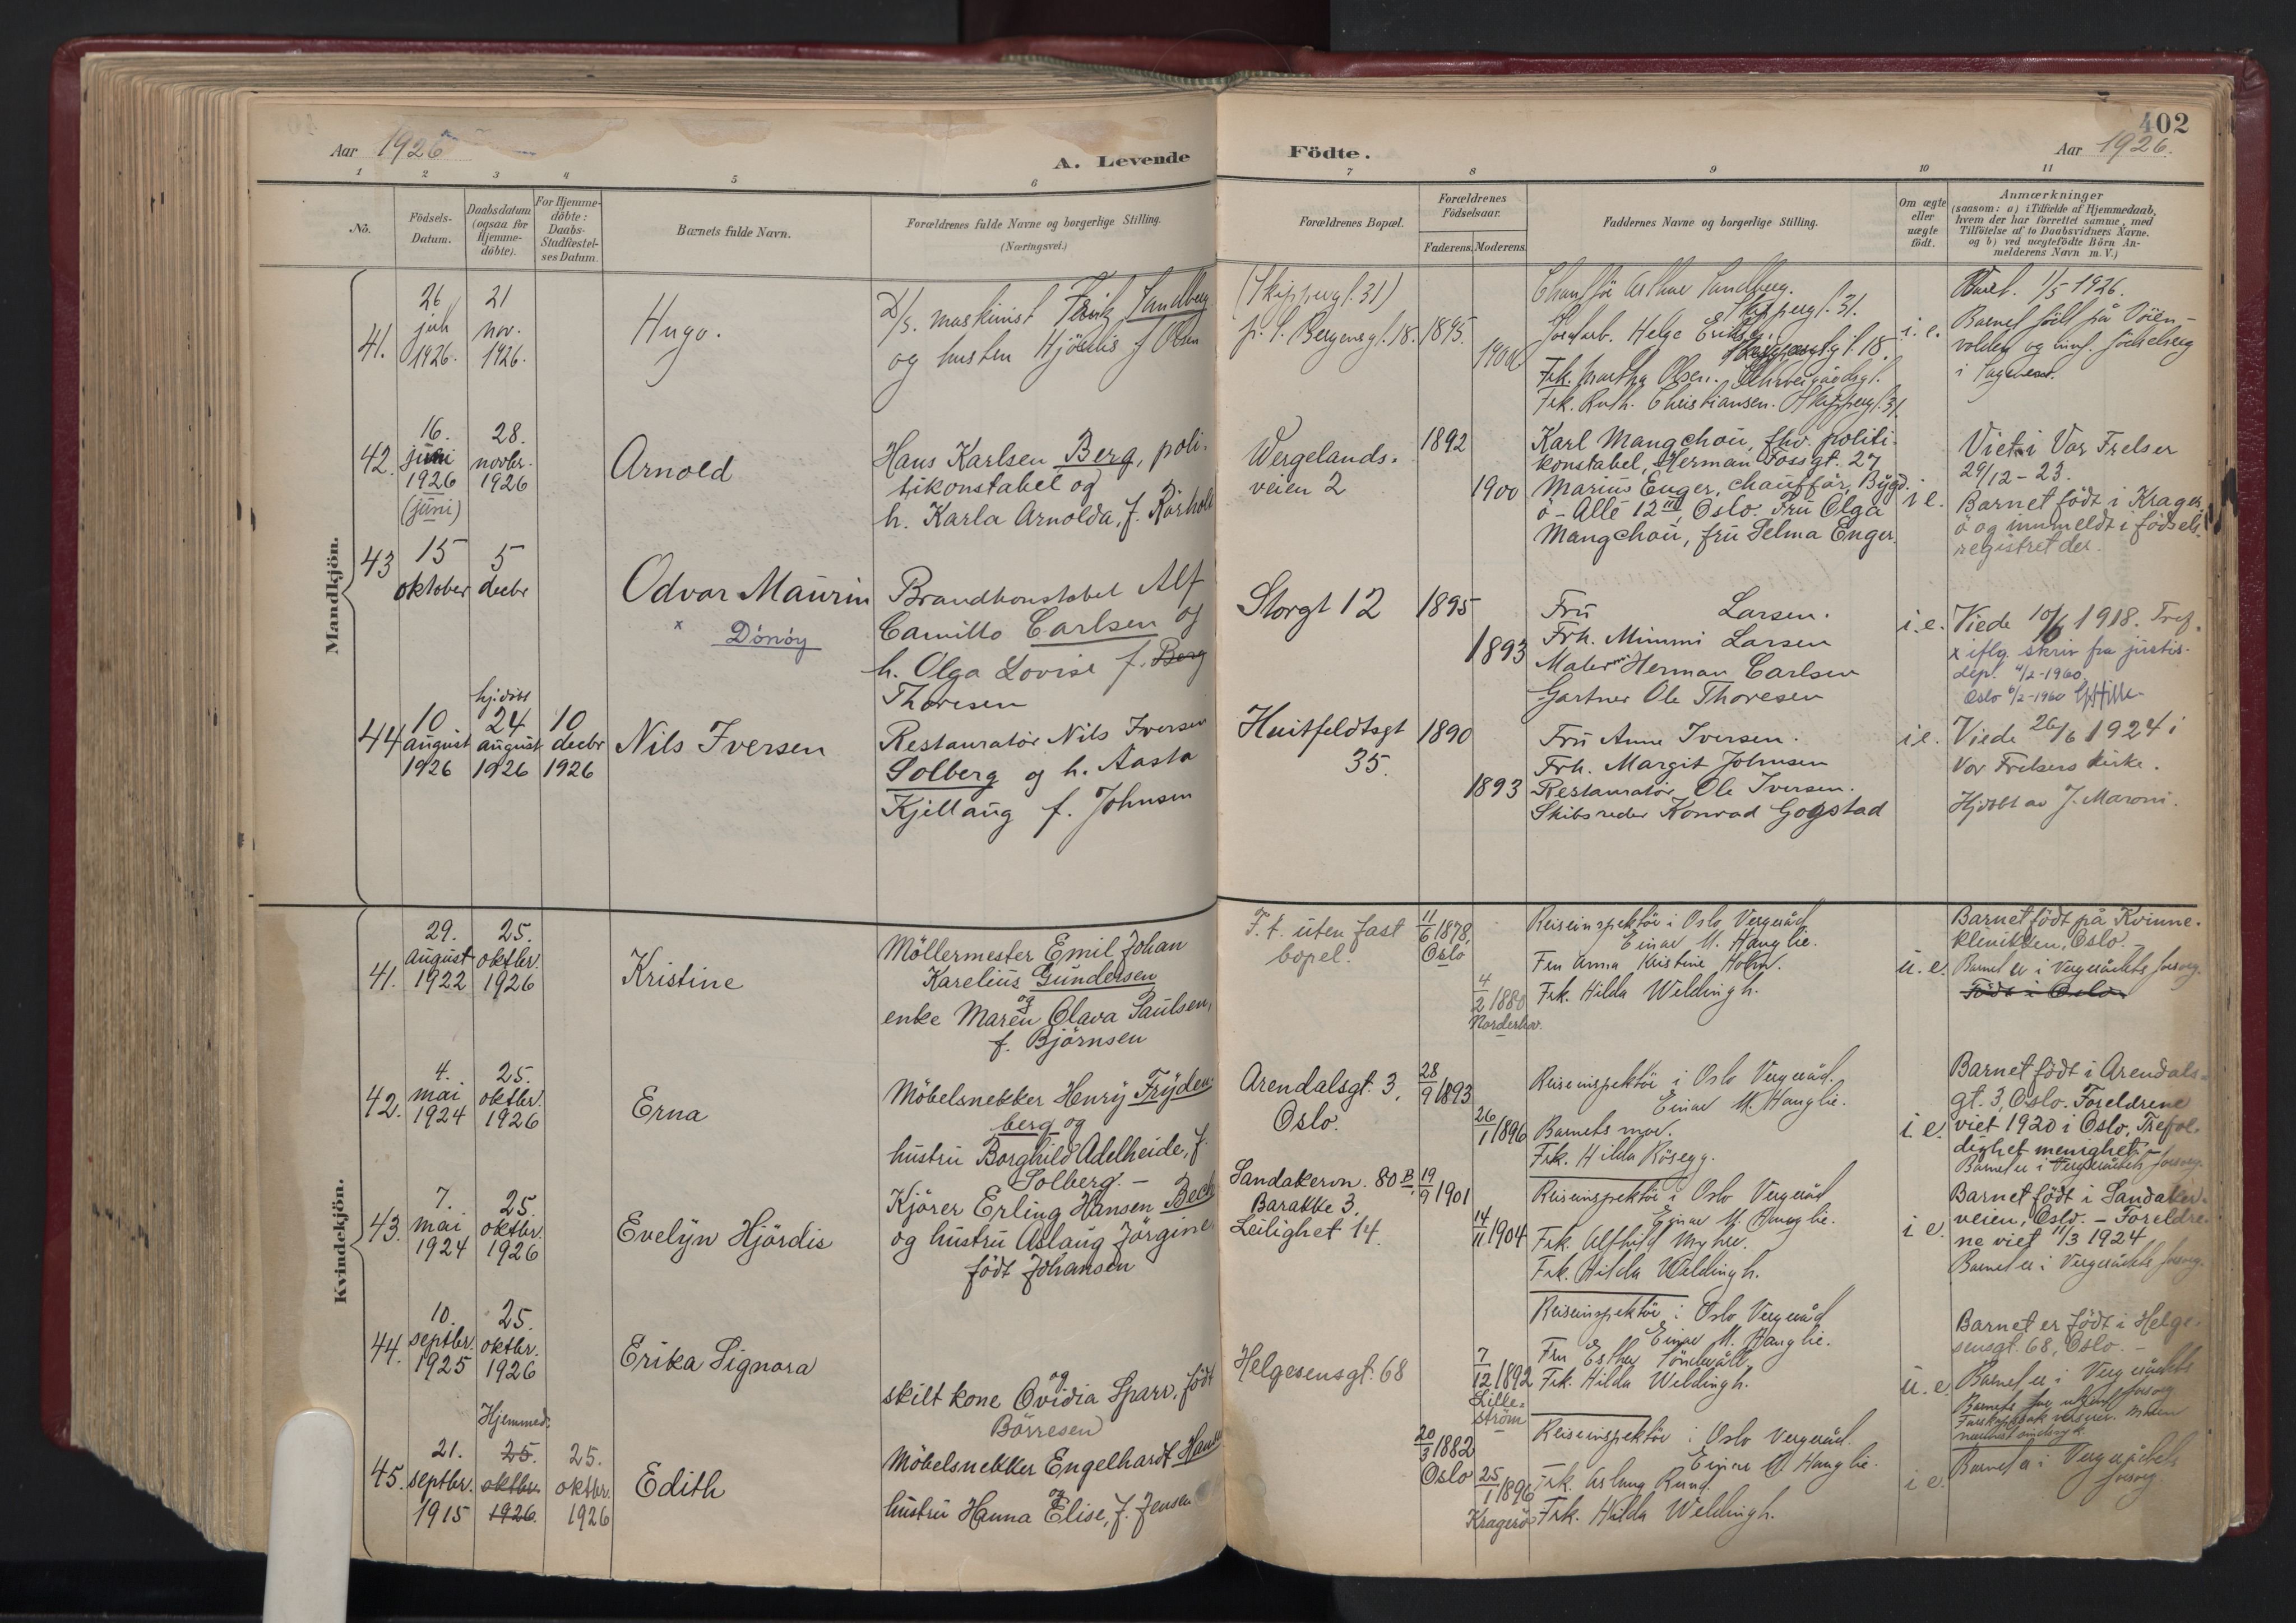 402
Aar 1926
A. Levende
Födte.
Aar 1926.
1 2 3 4 5 6 7 8 9 10 11
Nö.
Födsels-
Datum.
Daabsdatum
(ogsaa for
Hjemme-
döbte).
For Hjemme-
döbte:
Daabs-
Stadfæstel-
ses Datum.
Barnets fulde Navn.
Forældrenes fulde Navne og borgerlige Stilling.
(Næringsvei.)
Forældrenes Bopæl.
Forældrenes
Födselsaar.
Faderens. Moderens.
Faddernes Navne og borgerlige Stilling.
Om ægte
eller
uægte
födt.
Anmærkninger
(saasom: a) i Tilfælde af Hjemmedaab,
hvem der har forrettet samme, med
Tilföielse af to Daabsvidners Navne.
og b) ved uægtefödte Börn An-
melderens Navn m. V.)
Mandkjön.
41.
26
juli
1926.
21
nov.
1926.
Hugo.
D/s. maskinist Fritz Sandberg
og hustru Hjördis f. Olsen
(Skippergt. 31)
p. t. Bergensgt. 18.
1895.
1900
Chaufför Arthur Sandberg.
Skippergt. 31.
Jordarb. Helge
Frk. Martha Olsen.
Frk. Ruth. Christiansen. Skippergt. 31.
i. e.
1/5 1926.
Barnet födt på Döien-
42.
16.
juni
1926
(juni)
28.
novbr.
1926
Arnold
Hans Karlsen Berg, poli-
tikonstabel og
h. Karla Arnolda, f. Rörholt
Wergelands-
veien 2
1892
1900
Karl Mangchou, fhv. politi-
konstabel, Herman Fossgt. 27
Marius Enger, chaufför, Bygd-
ö-Alle 12 III, Oslo. Fru Olga
Mangchou, fru Selma Enger.
i e.
Viet i Vor Frelser
29/12-23.
Barnet födt i Krager-
ö og innmeldt i födsels-
registret der.
43
15
oktober
5
decbr
Odvar Maurin
x Dönöy
Brandkonstabel Alf
Camillo Carlsen og
h. Olga Lovise f. Berg
Thoresen
Storgt 12
1895
1893
Fru Larsen.
Frk. Mimmi Larsen
Maler Herman Carlsen
Gartner Ole Thoresen
i.e.
Viede 10/6 1918. Tref.
x iflg. skriv fra justis-
dep. 4/2-1960.
Oslo 6/2-1960
44
10
august
1926
hj. döbt
24
august
1926
10
decbr
1926
Nils Iversen
Restauratör Nils Iversen
Solberg og h. Aasta
Kjellaug f. Johnsen
Huitfeldtsgt
35.
1890
1893
Fru Anne Iversen.
Frk. Margit Johnsen
Restauratör Ole Iversen.
Skibsreder Konrad Gogstad
i.e.
Viede 26/6 1924 i
Vor Frelsers kirke.
Hjdöbt av J. Maroni.
Kvindekjön.
41.
29.
august
1922
25.
oktbr.
1926
Kristine
Möllermester Emil Johan
Karelius Gundersen
og
enke Maren Olava Paulsen,
f. Björnsen
F. t. uten fast
bopel.
11/6 1878,
Oslo
4/2 1880
Norderhov.
Reiseinspektör i Oslo Vergeråd
Einar M. Hauglie.
Fru Anna Kristine Holm.
Frk. Hilda Weldingh.
u. e.
Barnet födt på Kvinne-
klinikken, Oslo.-
Barnet er i Vergerådets forsorg.
Födt i Oslo
42.
4.
mai
1924
25.
oktbr.
1926
Erna
Möbelsnekker Henry Fryden-
berg og
hustru Borghild Adelheide, f.
Solberg. -
Arendalsgt. 3,
Oslo.
28/9 1893
26/1 1896
Reiseinspektör i Oslo Vergeråd.
Einar M. Hauglie.
Barnets mor.
Frk. Hilda Rösegg.
i. e.
Barnet födt i Arendals-
gt. 3, Oslo. Foreldrene
viet 1920 i Oslo, Trefol-
dighet menighet. -
Barnet er i Vergerådets forsorg.
43.
7.
mai
1924
25.
oktbr.
1926
Evelyn Hjördis
Kjörer Erling Hansen Bech
og hustru Aslaug Jörgine
födt Johansen
Sandakervn. 80 B,
Barakke 3,
Leilighet 14.
19/9 1901
14/11 1904
Reiseinspektör i Oslo Vergeråd
Einar M. Hauglie.
Frk. Alfhild Myhre.
Frk. Hilda Weldingh.
i e.
Barnet födt i Sandaker-
veien, Oslo. - Foreldre-
ne viet 11/3 1924.
Barnet er i Vergerådets forsorg.
44.
10.
septbr.
1925
25.
oktbr.
1926
Erika Signora
og
skilt kone Ovidia Sparr, födt
Börresen
Helgesensgt. 68
7/12 1892
Lille-
ström
Reiseinspektör i Oslo Vergeråd
Einar M. Hauglie.
Fru Esther
Frk. Hilda Weldingh.
u. e.
Barnet er födt i Helge-
sensgt. 68, Oslo. -
Barnet er i Vergerådets
forsorg
45.
21.
septbr.
1915
Hjemmed.
25.
oktbr.
1926.
25.
oktbr.
1926
Edith
Möbelsnekker Engelhardt Hansen
og
hustru Hanna Elise, f. Jensen
20/3 1882
Oslo
25/1 1896
Kragerö
Reiseinspektör i Oslo Vergeråd.
Einar M. Hauglie.
Frk. Aslaug Ruud.
Frk. Hilda Weldingh.
i e.
Barnet er i Vergerådets
forsorg.